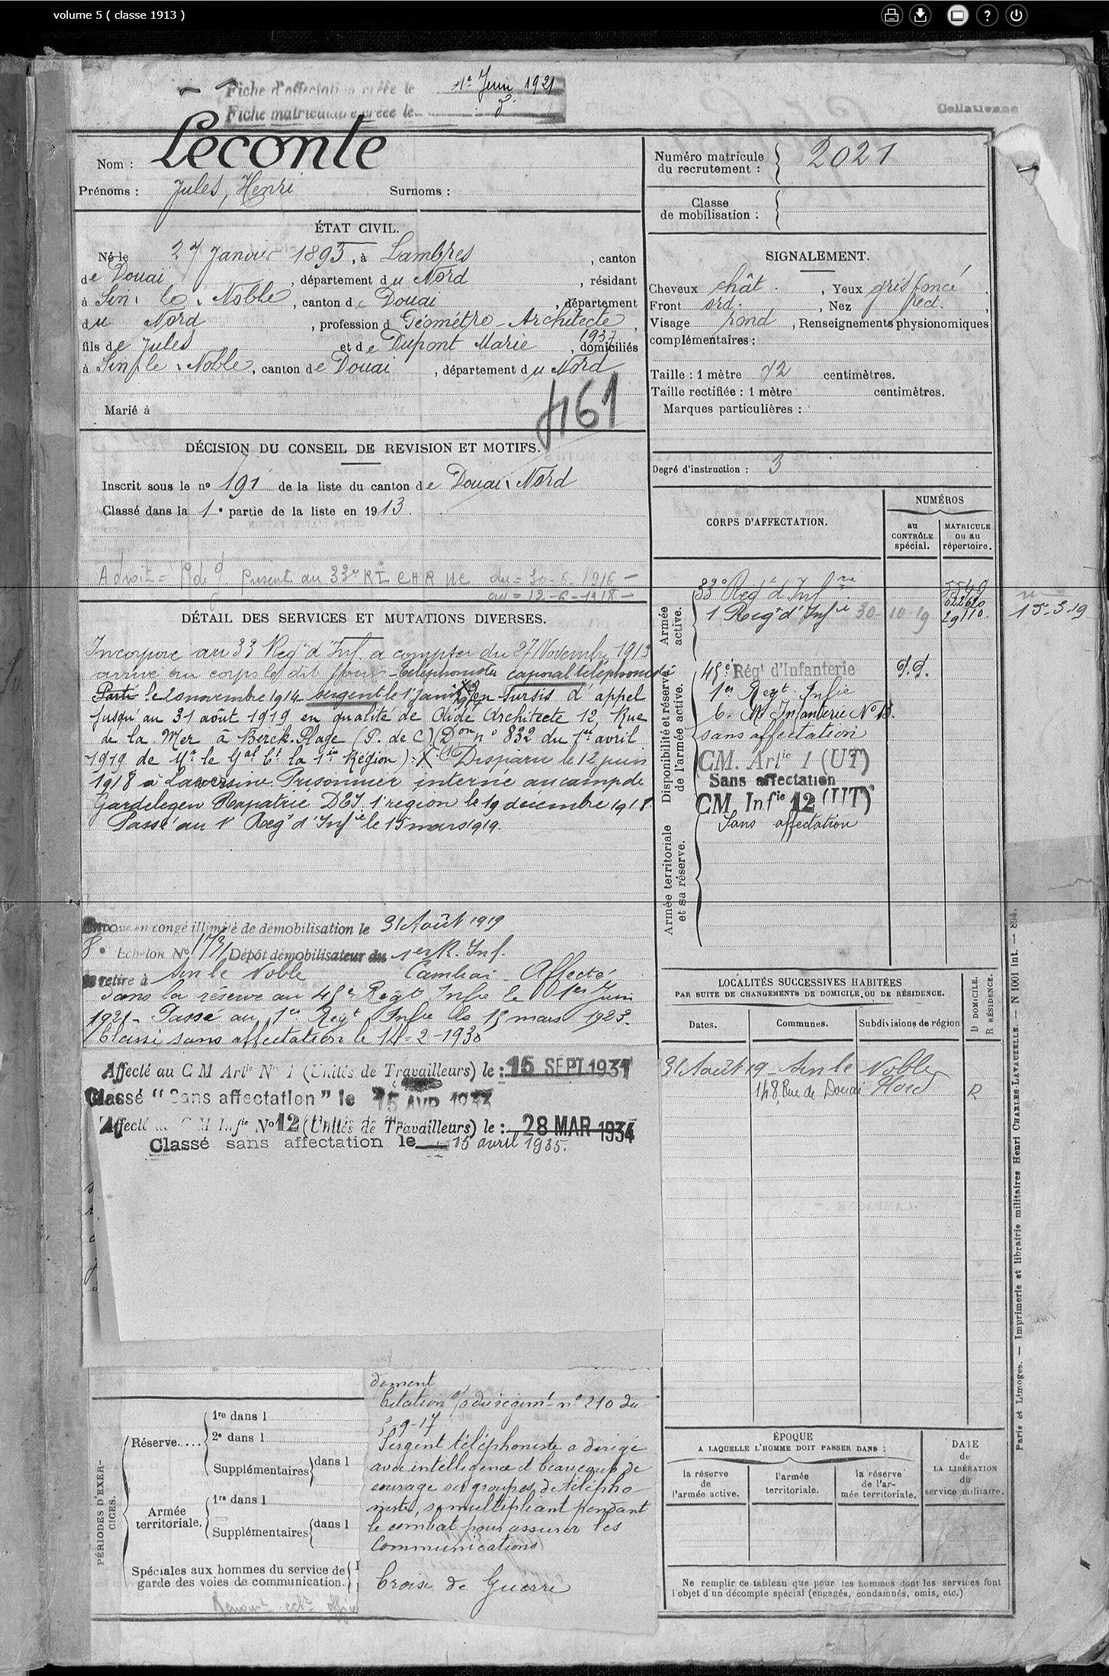 volume 5 ( classe 1913 )
Fiche d'affectation créée le 1er Juin 1921
Fiche matriculaire créée le
Collationné
Nom : Leconte
Prénoms : Jules, Henri Surnoms :
Numéro matricule du recrutement : 2021
Classe de mobilisation :
ÉTAT CIVIL.
Né le 27 Janvier 1893, à Lambres, canton
de Douai, département du Nord, résidant
à Sin le Noble, canton de Douai, département
du Nord, profession d Géomètre-Architecte,
fils de Jules et de Dupont Marie, domiciliés
1937
à Sin le Noble, canton de Douai, département du Nord
Marié à
461
SIGNALEMENT.
Cheveux chât. , Yeux gris foncé,
Front ord. , Nez rect. ,
Visage rond, Renseignements physionomiques
complémentaires :
Taille : 1 mètre 72 centimètres.
Taille rectifiée : 1 mètre centimètres.
Marques particulières :
Degré d'instruction : 3
DÉCISION DU CONSEIL DE REVISION ET MOTIFS.
Inscrit sous le no 191 de la liste du canton de Douai Nord
Classé dans la 1e partie de la liste en 1913.
présent au 33e RI
du = 30-6-1916 -
au = 12-6-1918 -
CORPS D'AFFECTATION.
NUMÉROS
au CONTRÔLE spécial.
MATRICULE ou au répertoire.
Armée active.
33e Regt d'Infrie
1 Regt d'Infie 30-10-19
15-3-19
Disponibilité et réserve de l'armée active.
45e Régt d'Infanterie
1er Regt Infie
sans affectation
CM. Artie 1 (UT)
Sans affectation
CM. Infie 12 (UT)
Sans affectation
Armée territoriale et sa réserve.
DÉTAIL DES SERVICES ET MUTATIONS DIVERSES.
Incorporé au 33 Regt d'Inf. à compter du 27 Novembre 1913
arrivé au corps le dit jour téléphoniste caporal téléphoniste
le 20 novembre 1914 sergent le 1 Janv En sursis d'appel
jusqu'au 31 août 1919 en qualité de Aide Architecte 12, Rue
de la Mer à Berck-Plage (P. de C) Don n° 832 du 1er avril
1919 de Mr le Gal Ct la 1ère Région) : X Disparu le 12 juin
1918 à Laversine Prisonnier interné au camp de
Gardelegen Rapatrié DET. 1e région le 19 décembre 1918
Passé au 1r Regt d'Infie le 15 mars 1919.
Envoyé en congé illimité de démobilisation le 31 Août 1919
8e Echelon No Dépôt démobilisateur du 1er R. Inf.
Se retire à Sin le Noble Cambrai Affecté
dans la réserve au 45e Regt Infie le 1er Juin
1921- Passé au 1er Regt Infie le 15 mars 1923-
Classé sans affectation le 14-2-1930
Affecté au C M Artie No 1 (Unités de Travailleurs) le : 15 SEPT 1931
Classé "Sans affectation" le 15 AVR
Affecté au C M Infie No 12 (Unités de Travailleurs) le : 28 MAR 1934
Classé sans affectation le 15 avril 1935.
LOCALITÉS SUCCESSIVES HABITÉES
PAR SUITE DE CHANGEMENTS DE DOMICILE OU DE RÉSIDENCE.
D DOMICILE.
R RÉSIDENCE.
Dates. Communes. Subdivisions de région
31 Août 19 - Sin le Noble
148, Rue de Douai Nord R
PÉRIODES D'EXERCICES.
Réserve....
1re dans l
2e dans l
Supplémentaires dans l
Armée territoriale.
1re dans l
Supplémentaires dans l
Spéciales aux hommes du service de
garde des voies de communication.
dement
Citation o/ du régimt n° 210 du
5-9-17
Sergent téléphoniste a dirigé
avec intelligence et beaucoup de
courage ses groupes de télépho-
nistes, se multipliant pendant
le combat pour assurer les
communications
Croix de Guerre
ÉPOQUE
A LAQUELLE L'HOMME DOIT PASSER DANS :
la réserve de l'armée active.
l'armée territoriale.
la réserve de l'armée territoriale.
DATE de LA LIBÉRATION du service militaire.
Ne remplir ce tableau que pour les hommes dont les services font
l'objet d'un décompte spécial (engagés, condamnés, omis, etc.)
Paris et Limoges. — Imprimerie et librairie militaires Henri CHARLES-LAVAUZELLE. — N 1001 int. — 894.